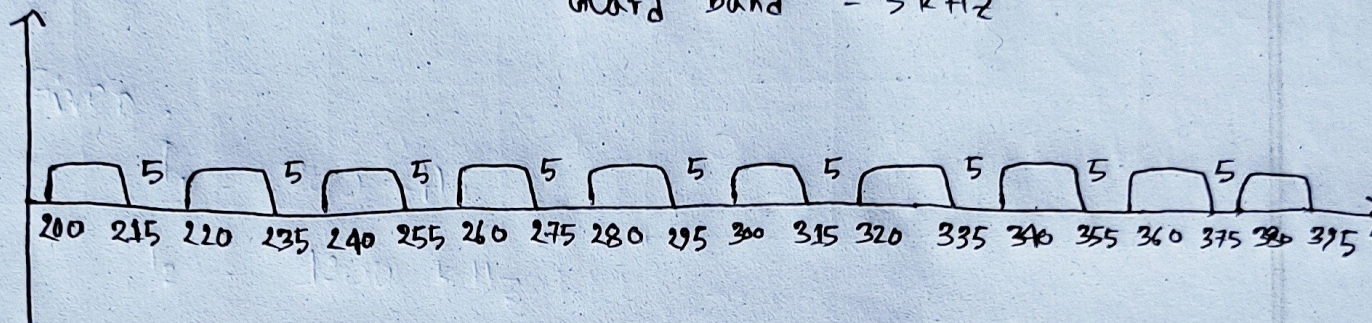 Guard band = 5 kHz
5 5 5 5 5 5 5 5 5
200 215 220 235 240 255 260 275 280 295 300 315 320 335 340 355 360 375 380 395